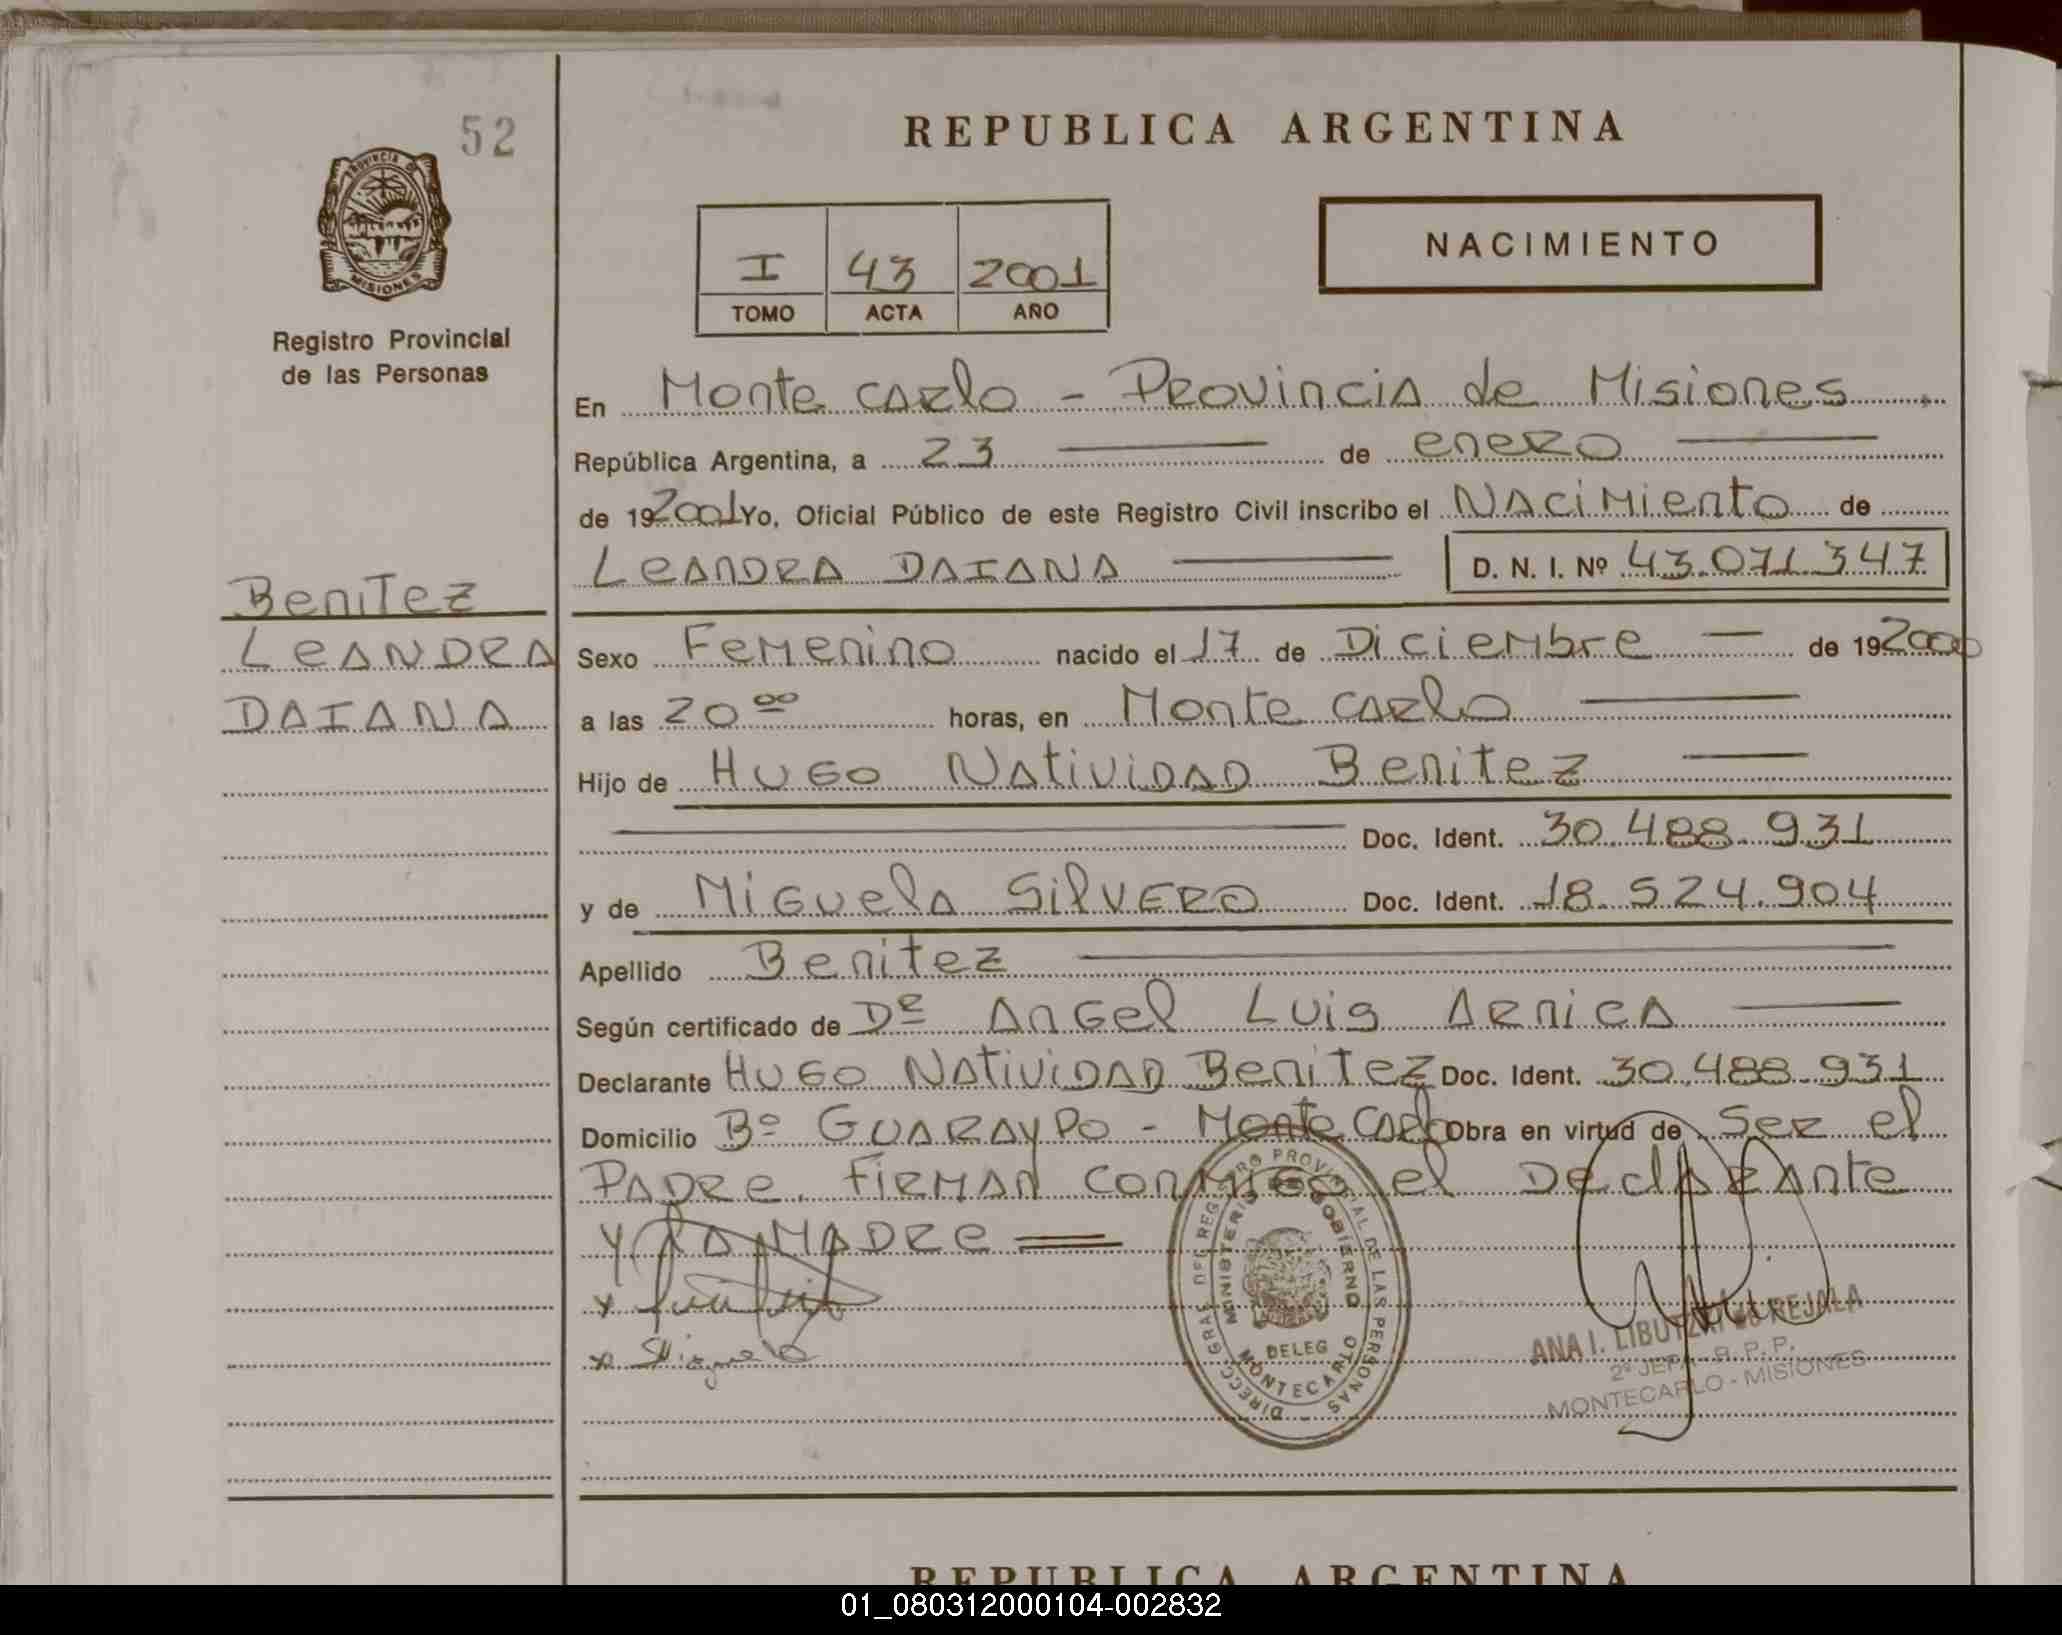 52
PROVINCIA DE
MISIONES
Registro Provincial
de las Personas
Benitez
LeANDRA
DAIANA
REPUBLICA ARGENTINA
I 43 2001
TOMO ACTA AÑO
NACIMIENTO
En Monte CARlo - PROVINCIA de Misiones
República Argentina, a 23 de eneRO
de 192001 Yo, Oficial Público de este Registro Civil inscribo el NACiMiento de
LeANDRA DAIANA D. N. I. Nº 43.071.347
Sexo FeMenino nacido el 17 de DiCieMbre de 192000
a las 20 00 horas, en Monte CARlo
Hijo de HUGO NAtiviDAD Benitez
Doc. Ident. 30.488.931
y de MiGuelA SilVERO Doc. Ident. 18.524.904
Apellido Benitez
Según certificado de DR ANGel LUis ARNiCA
Declarante HUGO NAtiviDAD BeniteZ Doc. Ident. 30.488.931
Domicilio Bº GUARAyPO - Monte CARlo Obra en virtud de SeR el
PADRe. FiRMAN CONMIGO el DeClARANte
Y LA MADRe
x
x Miguela
DIRECC. GRAL. DEL REGISTRO PROVINCIAL DE LAS PERSONAS
MINISTERIO DE GOBIERNO
DELEG
MONTECARLO
ANA I. REJALA
2º JEFA - R. P. P.
MONTECARLO - MISIONES
REPUBLICA ARGENTINA
01_080312000104-002832